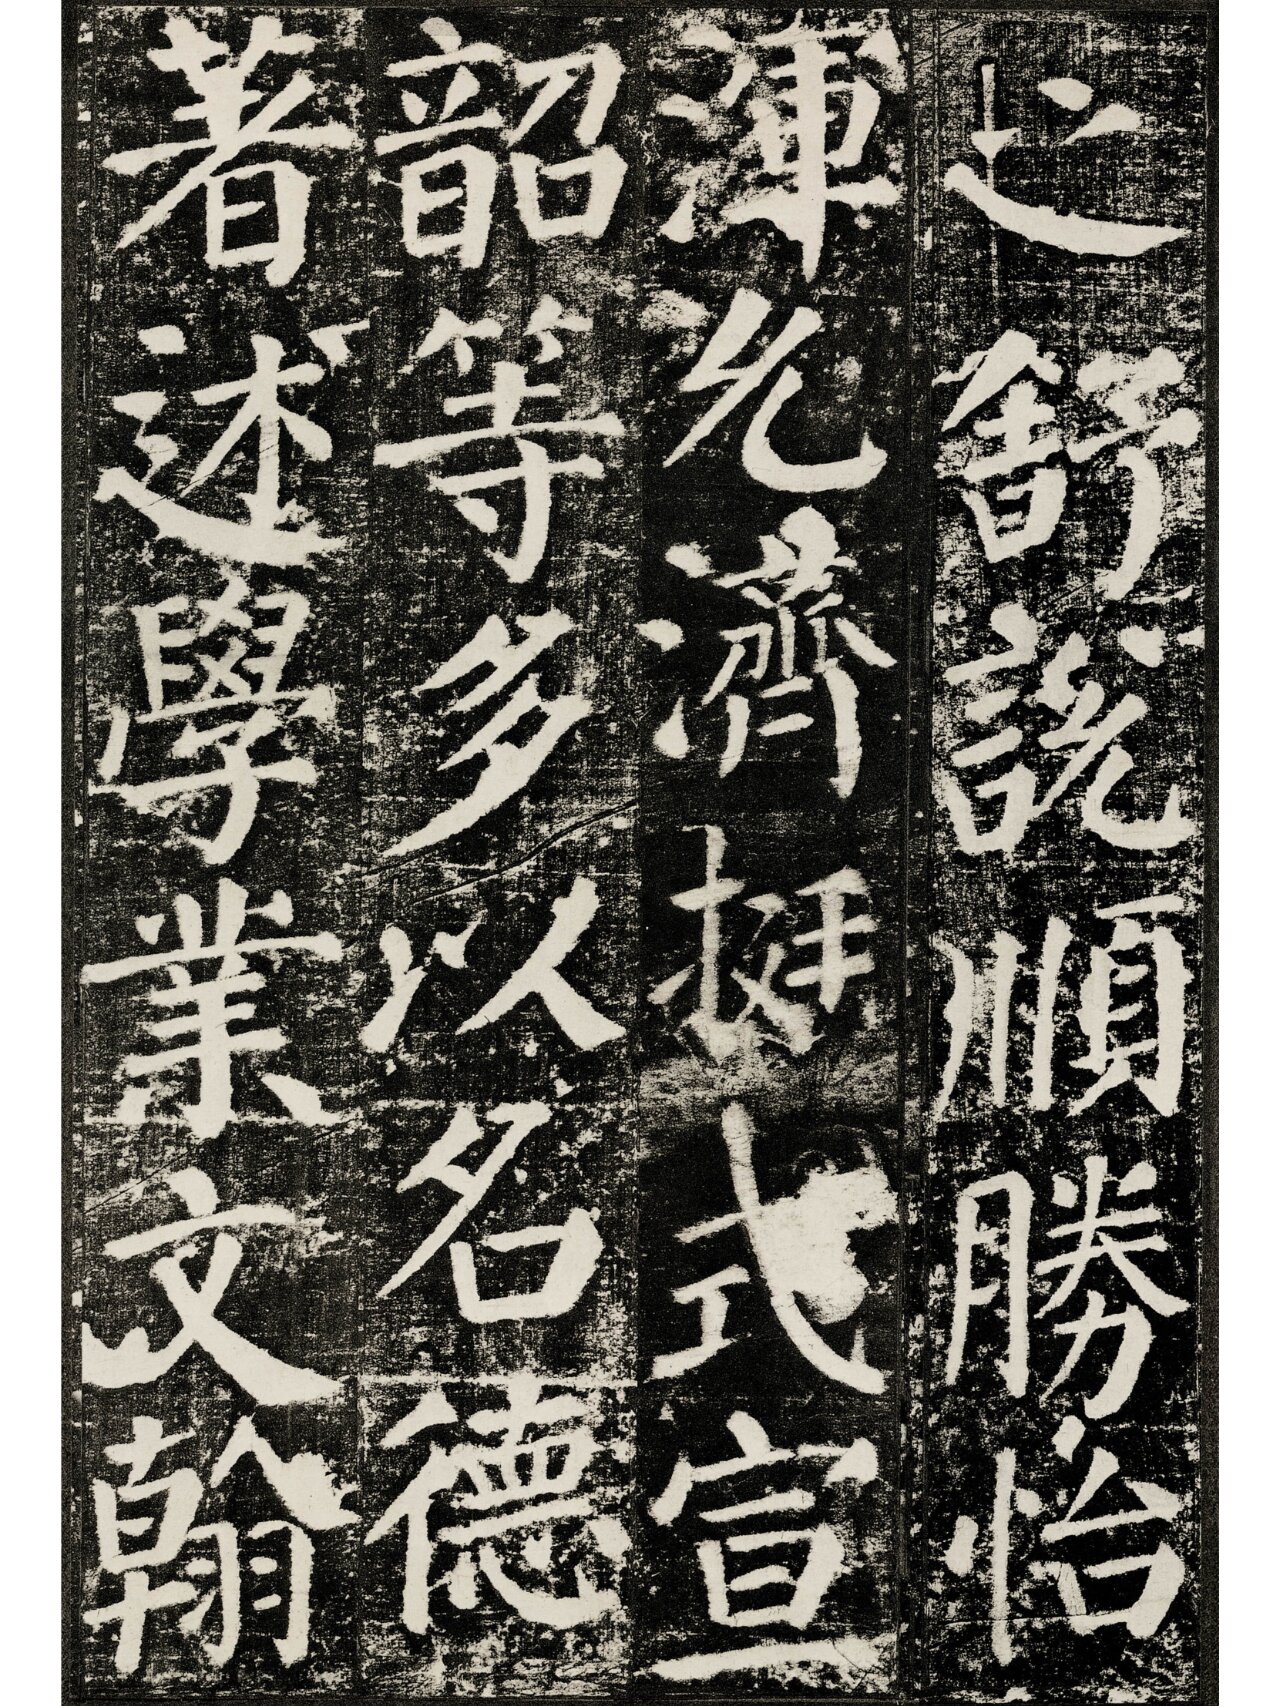 之舒說順勝怡
渾允濟挺式宣
韶等多以名德
著述學業文翰